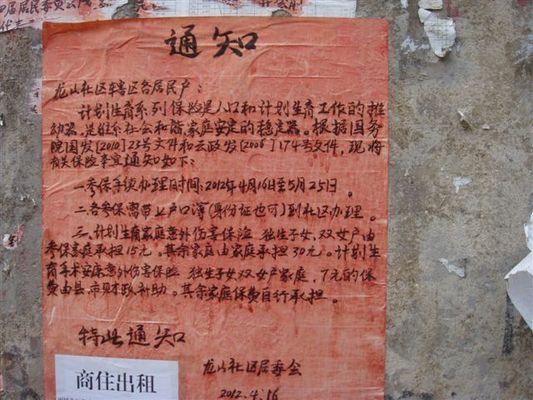 居民委员会
通知
龙山社区辖区各居民户：
计划生育系列保险是人口和计划生育工作的推
动器，是维系社会和谐，家庭安定的稳定器。根据国务
院国发[2010]23号文件和云政发[2006]174号文件，现将
有关保险事宜通知如下：
一、参保手续办理时间：2012年4月16日至5月25日。
二、各参保需带上户口簿（身份证也可）到社区办理。
三、计划生育家庭意外伤害保险，独生子女，双女户由
参保家庭承担15元。其余家庭由家庭承担30元。计划生
育手术安康意外伤害保险 独生子女双女户家庭，7元的保
费由县、市财政补助。其余家庭保费自行承担。
特此通知
龙山社区居委会
2012.4.16
商住出租